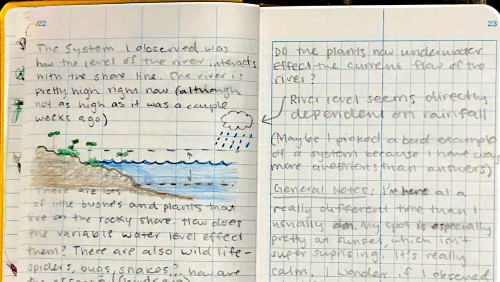 22
The System I observed was
how the level of the river interacts
with the shore line. The river is
pretty high right now (although
not as high as it was a couple
weeks ago)
There are lots
of little bushes and plants that
live on the rocky shore. How does
the variable water level effect
them? There are also wild life-
spiders, bugs, snakes,? how are
23
Do the plants now underwater
effect the current flow of the
river?
River level seems directly
dependent on rainfall
(Maybe I picked a bad example
of a system because I have way
more questions than answers)
General Notes: I'm here at a
really different time than I
usually am. My spot is especially
pretty at sunset, which isn't
super suprising. It's really
calm. I wonder if I observed